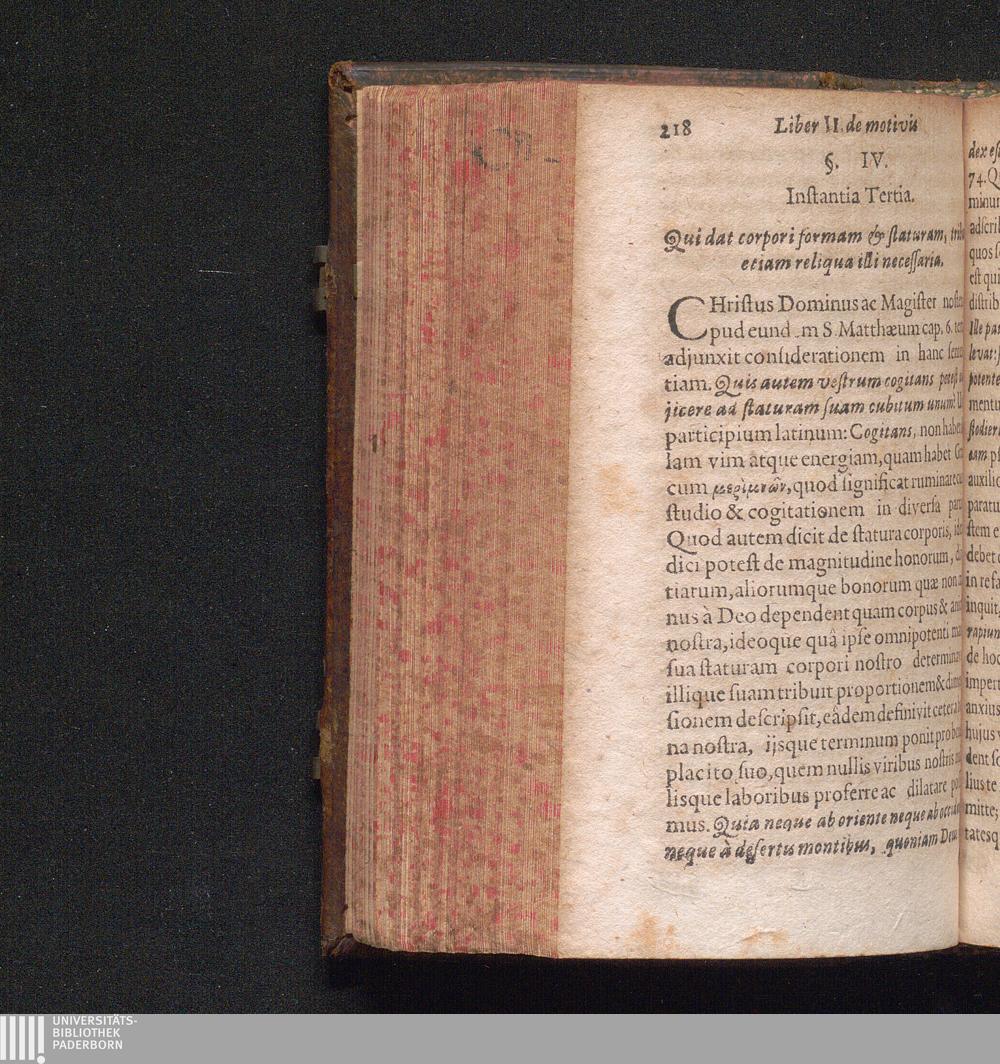 218 Liber II. de motivis
§. IV.
Inſtantia Tertia.
Qui dat corpori formam & ſtaturam,
etiam reliqua illi neceſſaria.
CHriſtus Dominus ac Magiſter
pud eund m S. Matthæum cap. 6.
adjunxit conſiderationem in hanc
tiam. Quis autem veſtrum cogitans
jicere ad ſtaturam ſuam cubitum unum?
participium latinum: Cogitans, non
lam vim atque energiam, quam habet
cum quod ſignificat ruminare
ſtudio & cogitationem in diverſa
Quod autem dicit de ſtatura corporis,
dici poteſt de magnitudine honorum,
tiarum, aliorumque bonorum quæ non
nus à Deo dependent quam corpus &
noſtra, ideoque quâ ipſe omnipotenti
ſua ſtaturam corpori noſtro
illique ſuam tribuit proportionem &
ſionem deſcripſit, eâdem definivit
na noſtra, ijsque terminum ponit pro
placito ſuo, quem nullis viribus
lisque laboribus proferre ac dilatare
mus. Quia neque ab oriente neque ab
neque à deſertis montibus, quoniam
74.
quos
eſt qui
diſtrib
levat:
potente
auxilio
debet
in re
inquit,
de hoc
anxius
hujus
dent
mitte;
UNIVERSITÄTS-
BIBLIOTHEK
PADERBORN